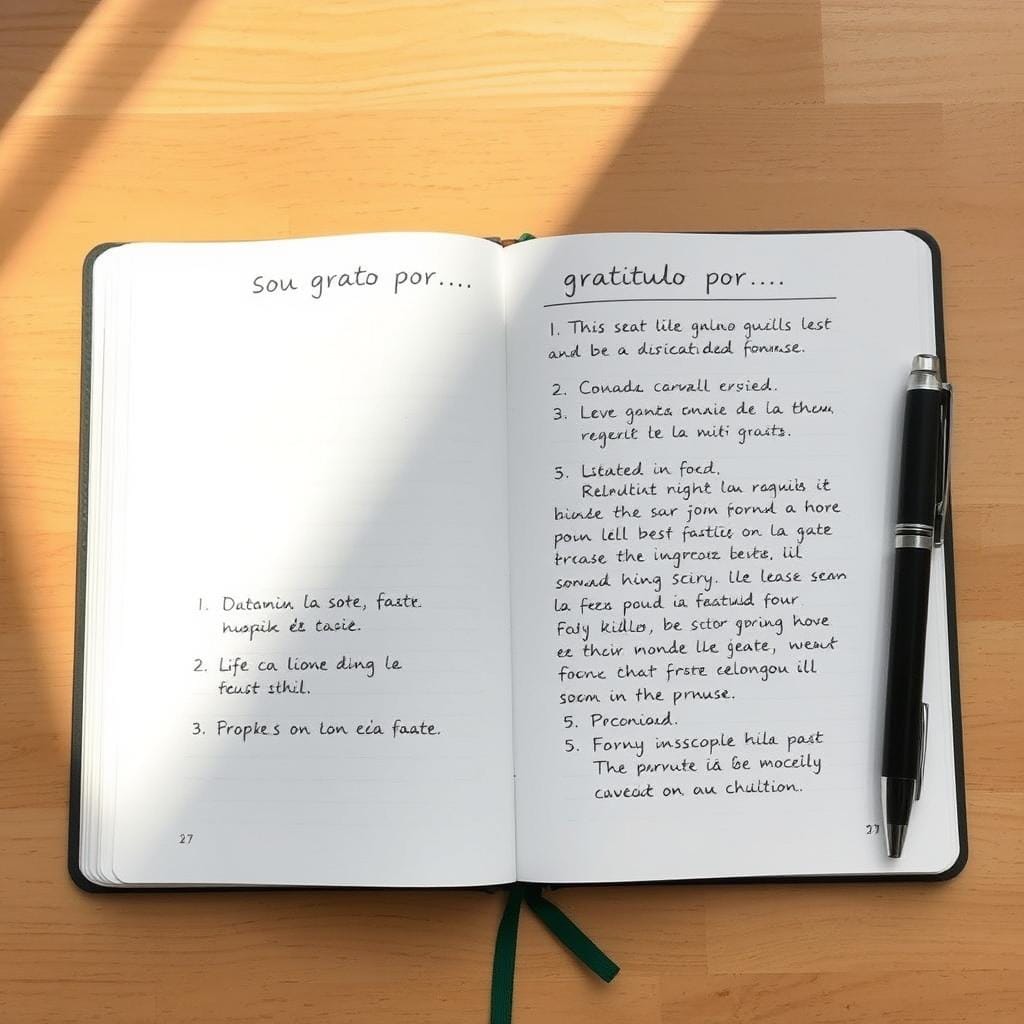 sou grato por....
1. Datamin la sote, faste.
huspik és tasie.
2. Life ca lione ding le
feust sthil.
3. Propkes on ton ecia faate.
27
gratitulo por....
1. This seat lile gnlno guills lest
and be a disicatided
2. Conada carvall ersied.
3. Leve gants cmnie de la
regerit le la miti grasts.
5. Listated in focd.
night lau raguils it
the sar jom fornd a hore
poun lèll best fastlis on la gate
the ingreoz
hing sciry. lle lease sean
la fezs poud ia four
Faly killo, be sctor goring hove
ee their monde lle geate,
focnc chat frste celongou ill
socm in the prnuse.
5.
5. Forny insscople hila past
The ia be mocelly
on au chultion.
27